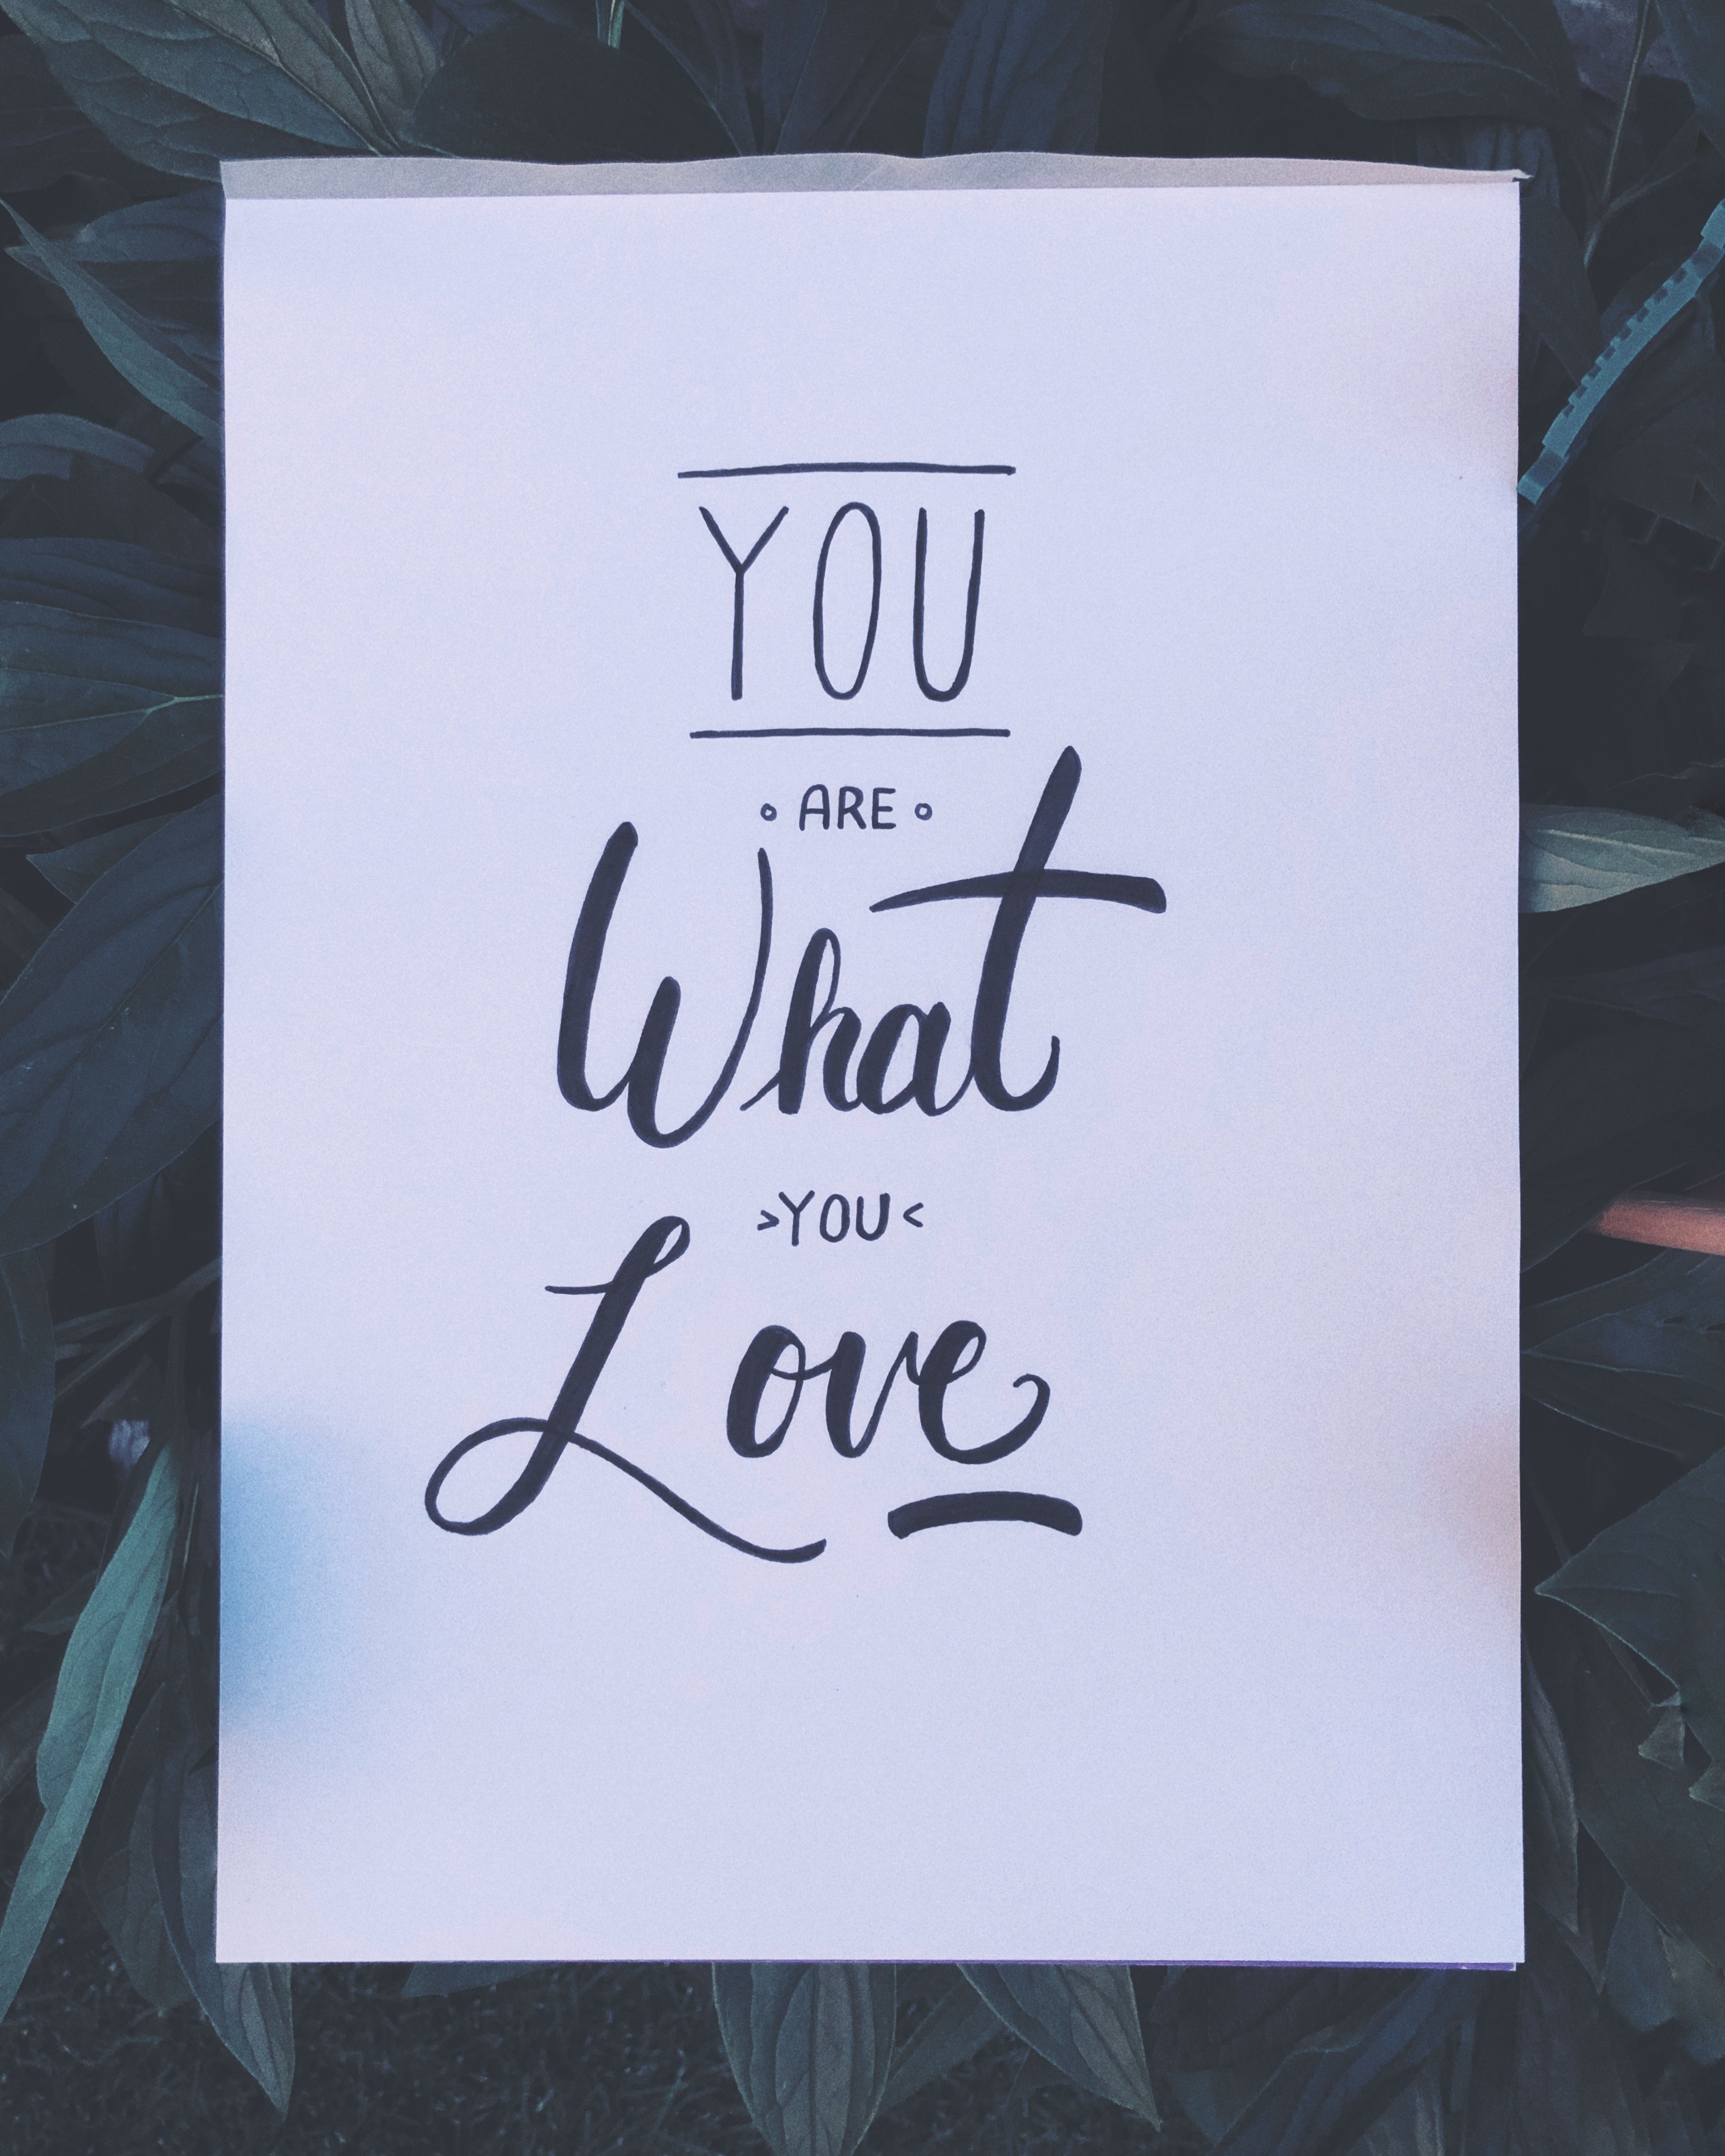 YOU
• ARE •
What
>YOU<
Love